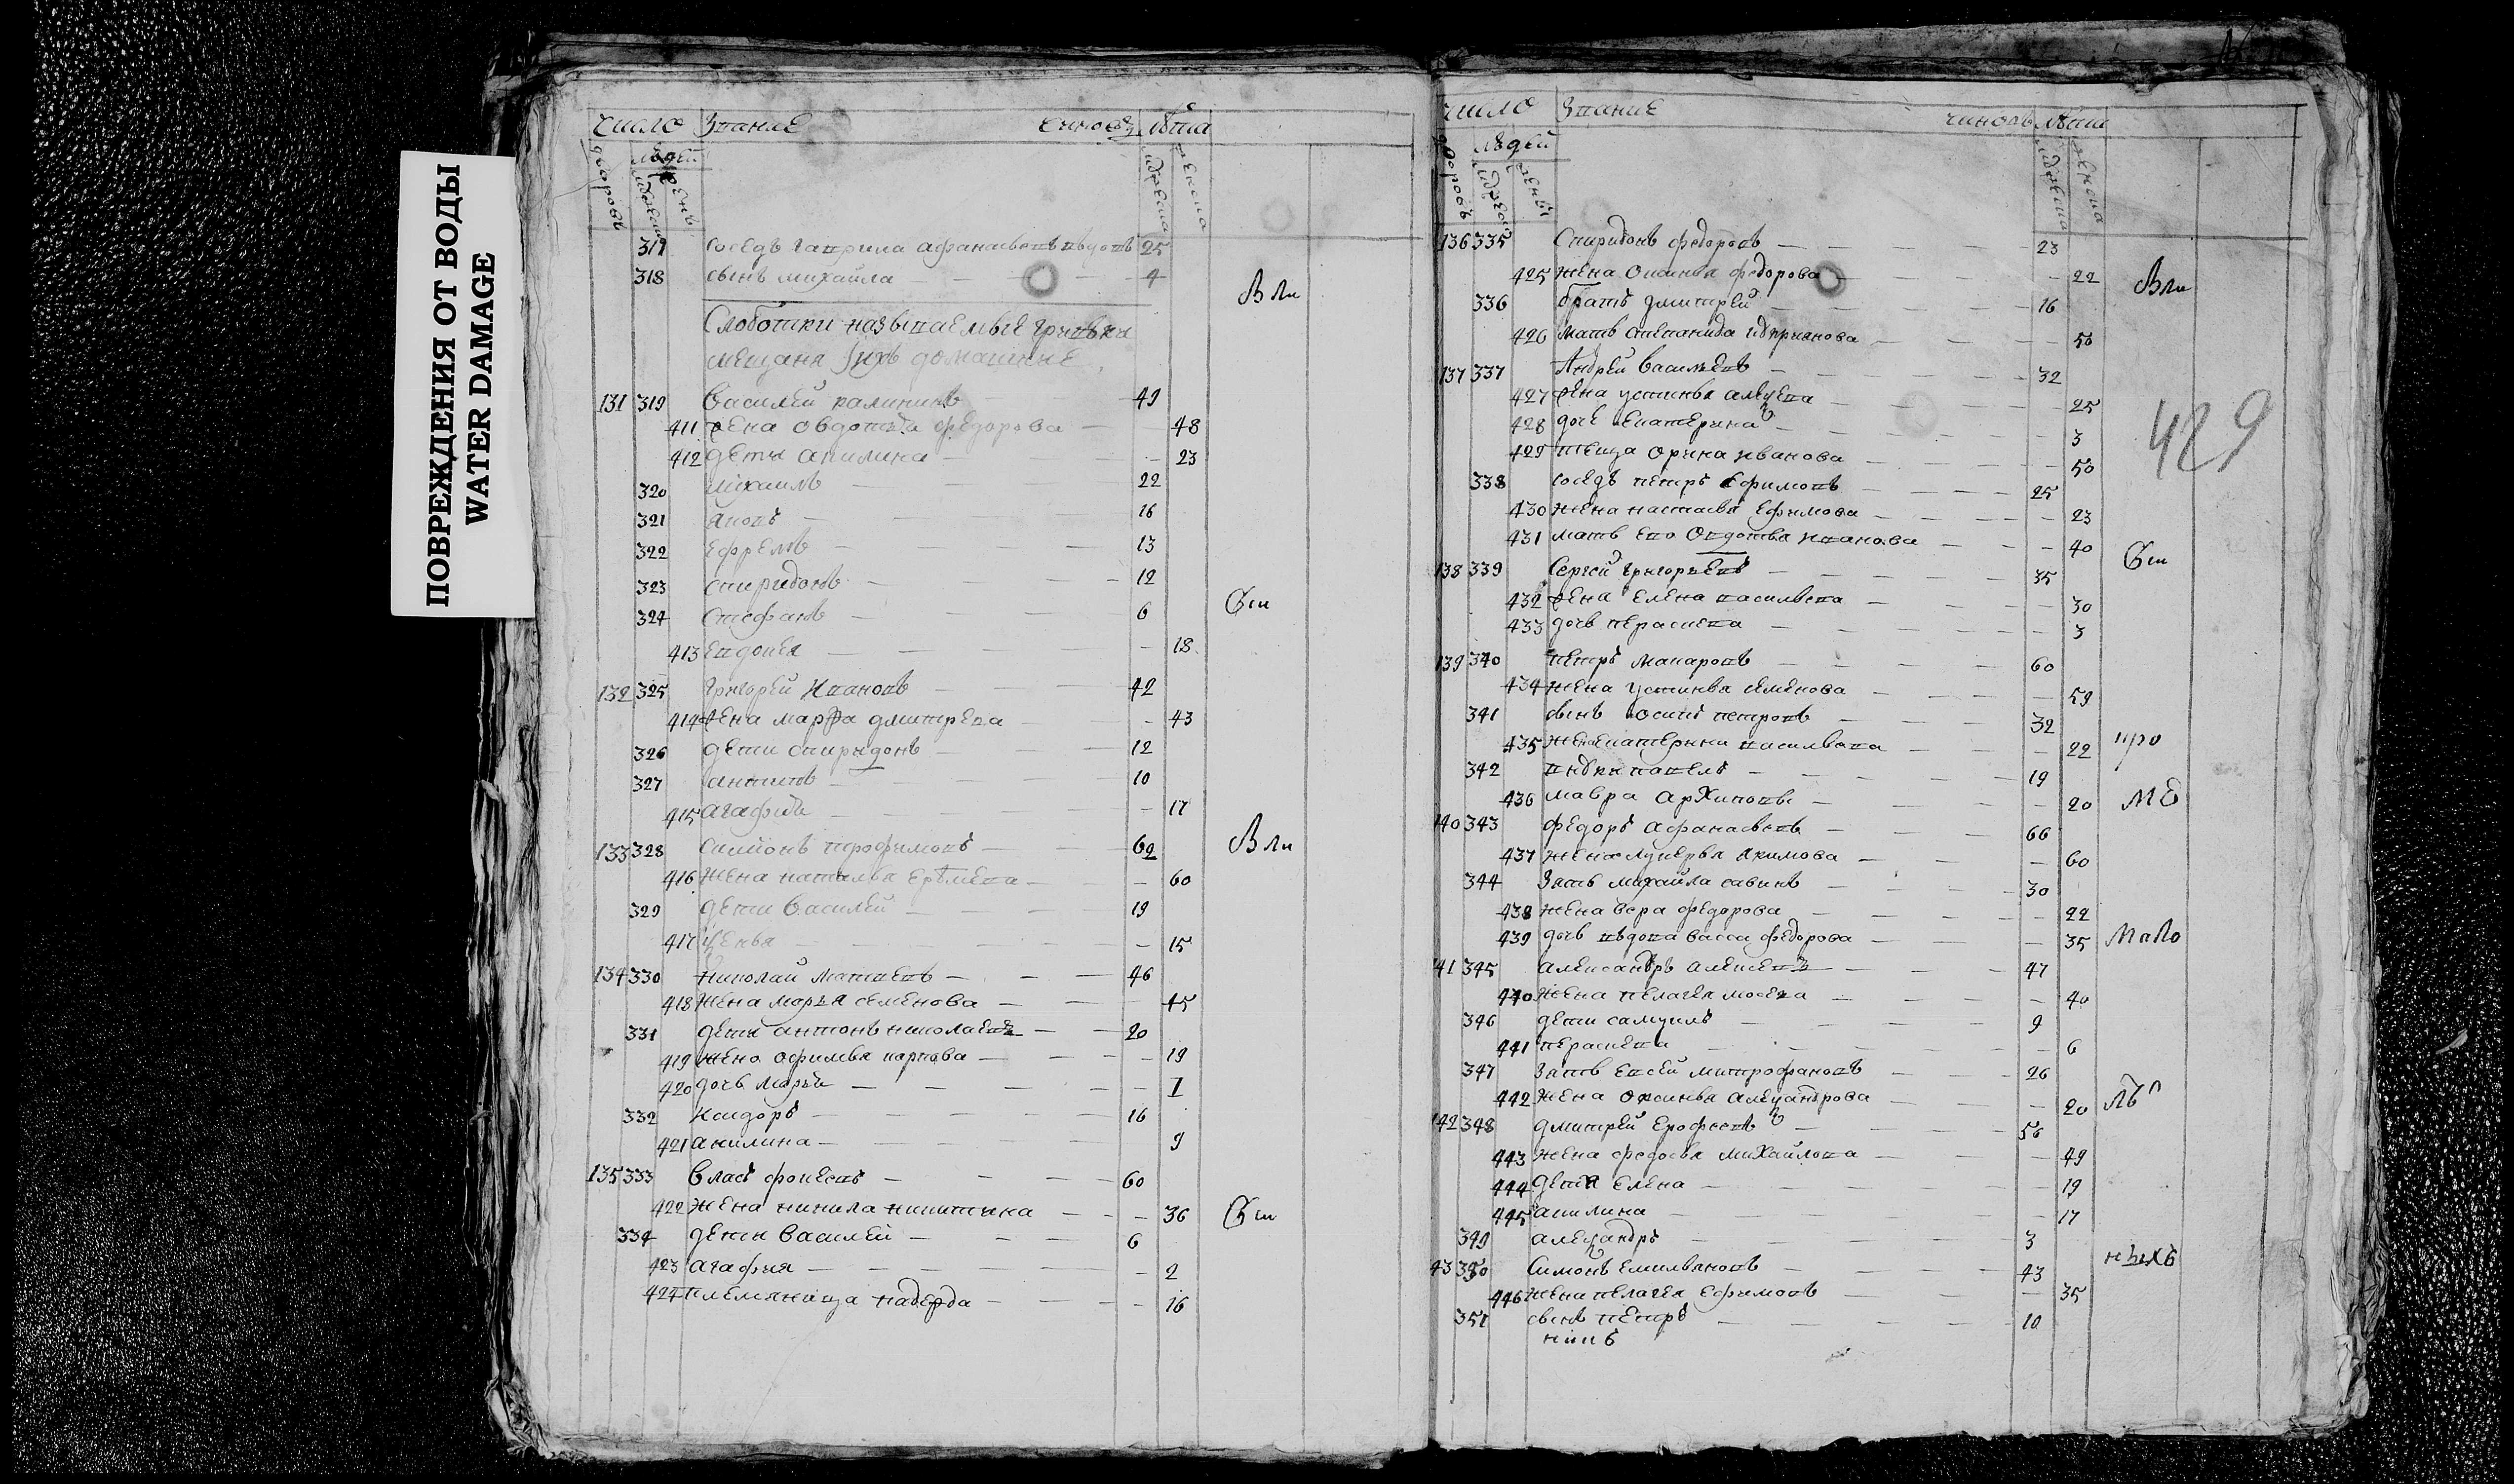 ПОВРЕЖДЕНИЯ ОТ ВОДЫ
WATER DAMAGE
число Звание чиновъ лѣта
дворовъ людей мужеска женска
317 соседъ гаврила афанасьевъ вдовъ 25
318 сынъ михайла 4
Вли
Слоботки называемые
мещаня Ихъ домашние
131 319 Василей калининъ 49
411 жена овдотья федорова 48
412 дети акилина 23
320 михаилъ 22
321 яковъ 16
322 ефремъ 13
323 спиридонъ 12
324 стефанъ 6
413 евдокея 18
132 325 григорей Ивановъ 42
414 жена марфа дмитрева 43
326 дети спиридонъ 12
327 антипъ 10
415 агафья 17
133 328 симионъ трофимовъ 69
Вли
416 жена наталья еремева 60
329 дети василей 19
417 15
134 330 николай матвеевъ 46
418 жена марья семенова 45
331 дети антонъ николаевъ 20
419 жена офимья карпова 19
420 дочь марья 1
332 исидоръ 16
421 акилина 9
135 333 власъ фокеевъ 60
422 жена никила никитина 36
334 дети василей 6
423 агафия 2
424 племяница надежда 16
число Звание чиновъ лѣта
дворовъ людей мужеска женска
136 335 Спиридонъ федоровъ 23
425 жена оксинья федорова 22
Вли
336 братъ дмитрей 16
426 мать степанида 50
137 337 Андрей васильевъ 32
427 жена устинья алексева 25
428 доче екатерина 3
429
429 теща орина иванова 50
338 соседъ петръ ефимовъ 25
430 жена настасья ефимова 23
431 мать ево овдотья иванова 40
138 339 сергей григорьевъ 35
432 жена елена васильева 30
433 дочь параскева 3
139 340 петръ макаровъ 60
434 жена устинья семенова 59
341 сынъ осипъ петровъ 32
435 жена екатерина васильева 22
про
342 павелъ 19
436 мавра архипова 20
ме
140 343 федоръ афанасьевъ 66
437 жена лукерья якимова 60
344 зять михайла савинъ 30
438 жена вера федорова 22
439 дочь вдова васса федорова 35
мало
141 345 александръ алексеевъ 47
440 жена пелагея мосева 40
346 дети самуилъ 9
441 параскева 6
347 зять евсей митрофановъ 26
442 жена оксинья александрова 20
лѣт
142 348 дмитрей ерофеевъ 56
443 жена федосья михайлова 49
444 детя елена 19
445 акилина 17
349 александръ 3
ныхъ
143 350 симонъ емильяновъ 43
446 жена пелагея ефимовъ 35
351 сынъ петръ 10